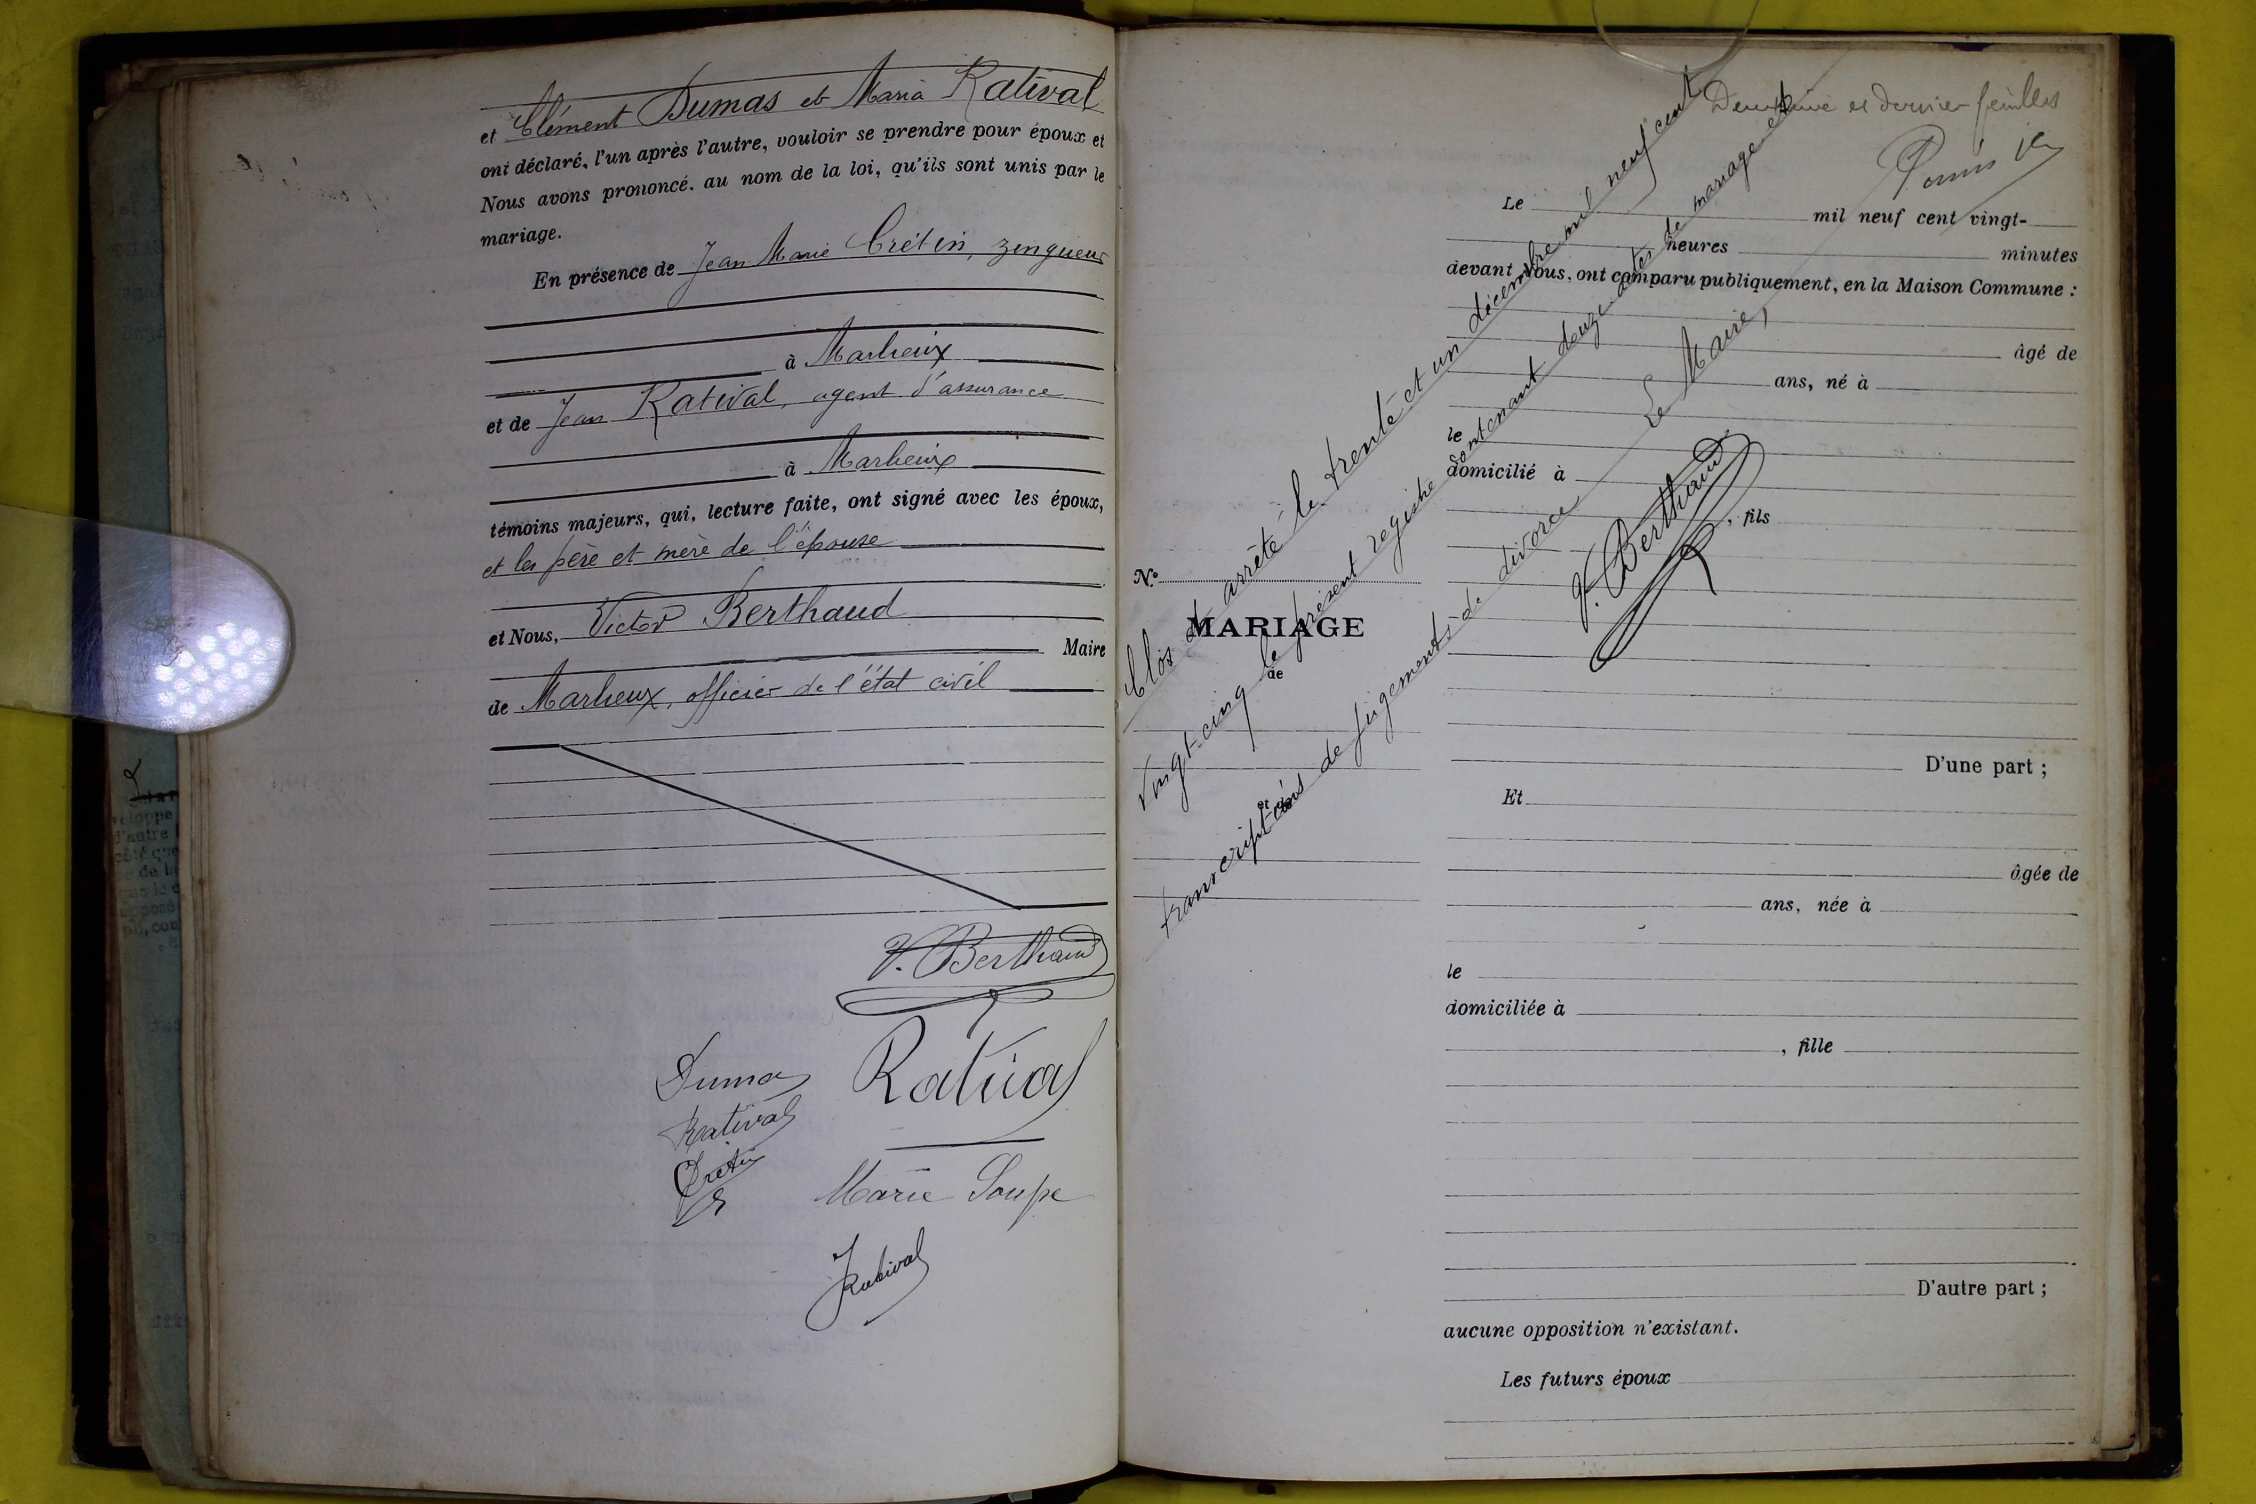 et Clément Dumas et Maria Ratival
ont déclaré, l'un après l'autre, vouloir se prendre pour époux et
Nous avons prononcé. au nom de la loi, qu'ils sont unis par le
mariage.
En présence de Jean Marie Crétin, zingueur
à Marlieux
et de Jean Ratival, agent d'assurance
à Marlieux
témoins majeurs, qui, lecture faite, ont signé avec les époux,
et les père et mère de l'épouse
et Nous, Victor Berthaud
Maire
de Marlieux, officier de l'état civil
V. Berthaud
Dumas
Ratival
Ratival
Crétin
Marie Soupe
J Ratival
et dernier feuillet
Le mil neuf cent vingt-
heures minutes
devant Nous, ont comparu publiquement, en la Maison Commune :
âgé de
ans, né à
le
domicilié à
, fils
N°
MARIAGE
de
et de
Clos et arrêté le trente et un décembre mil neuf cent
vingt-cinq le présent registre contenant douze actes de mariage et
transcriptions de jugements de divorce
Le Maire,
V. Berthaud
D'une part ;
Et
âgée de
ans, née à
le
domiciliée à
, fille
D'autre part ;
aucune opposition n'existant.
Les futurs époux